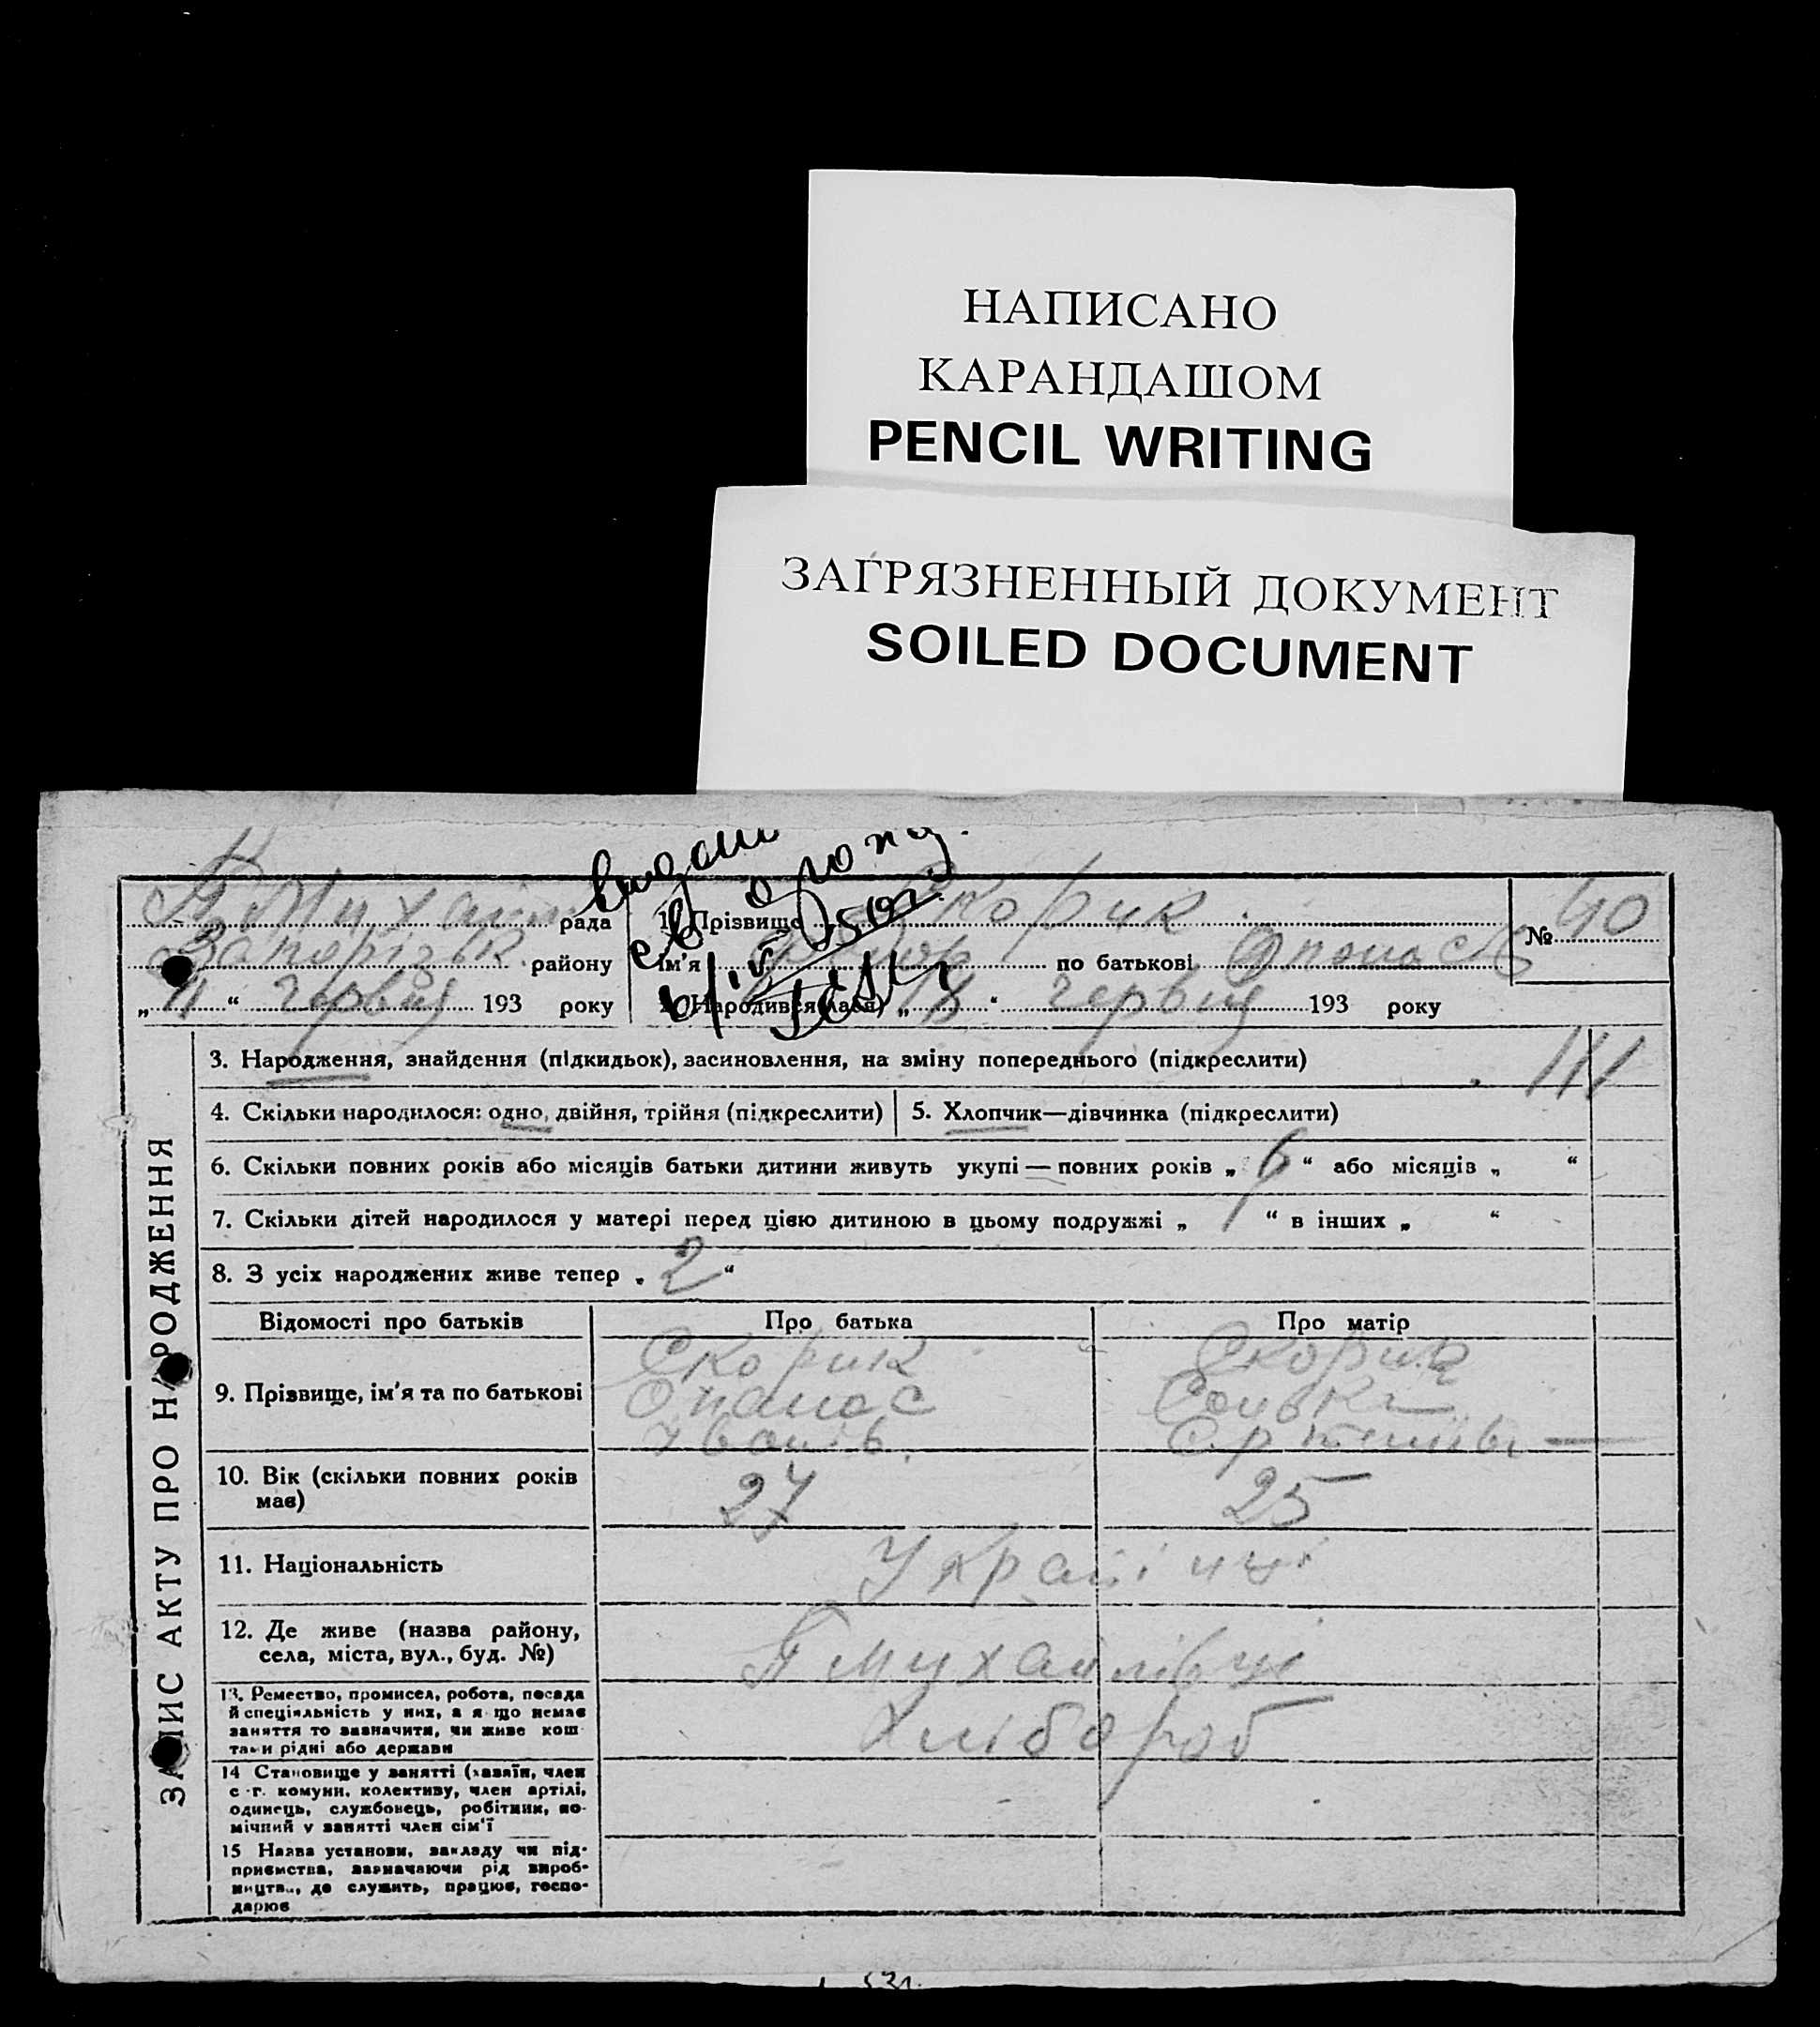 НАПИСАНО
КАРАНДАШОМ
PENCIL WRITING
ЗАГРЯЗНЕННЫЙ ДОКУМЕНТ
SOILED DOCUMENT
рада 1. Прізвище Скорик № 40
Запорізьк. району Ім'я по батькові
„11“ червня 193 року 2. Народився(лася) „ “ червня 193 року
3. Народження, знайдення (підкидьок), засиновлення, на зміну попереднього (підкреслити)
4. Скільки народилося: одно, двійня, трійня (підкреслити) 5. Хлопчик—дівчинка (підкреслити)
6. Скільки повних років або місяців батьки дитини живуть укупі — повних років „ 6 “ або місяців „ “
7. Скільки дітей народилося у матері перед цією дитиною в цьому подружжі „ 1 “ в інших „ “
8. З усіх народжених живе тепер „ 2 “
Відомості про батьків Про батька Про матір
Скорик Скорик
9. Прізвище, ім'я та по батькові Опанас
Іванів.
10. Вік (скільки повних років 27 25
має)
11. Національність Україінці
12. Де живе (назва району,
села, міста, вул., буд. №) П Михайлівці
13. Ремество, промисел, робота, посада
й спеціяльність у них, а я що немає Хлібороб
заняття то зазначити, чи живе кош
тами рідні або держави
14 Становище у занятті (хазяїн, член
с.-г. комуни, колективу, член артілі,
одинець, службовець, робітник, по-
мічний у занятті член сім'ї
15 Назва установи, закладу чи під-
приємства, зазначаючи рід вироб-
ництва, де служить, працює, госпо-
дарює
ЗАПИС АКТУ ПРО НАРОДЖЕННЯ